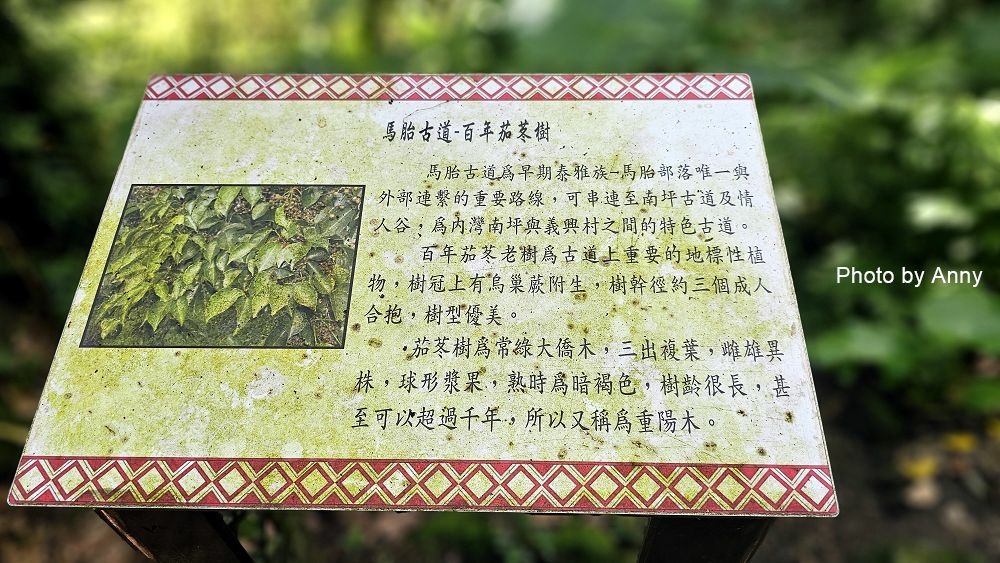 馬胎古道-百年茄苳樹
馬胎古道為早期泰雅族-馬胎部落唯一與
外部連繫的重要路線，可串連至南坪古道及情
人谷；為內灣南坪與義興村之間的特色古道。
百年茄苳老樹為古道上重要的地標性植
物，樹冠上有鳥巢蕨附生，樹幹徑約三個成人
合抱，樹型優美。
茄苳樹為常綠大僑木，三出複葉，雌雄異
株，球形漿果，熟時為暗褐色，樹齡很長，甚
至可以超過千年，所以又稱為重陽木。
Photo by Anny